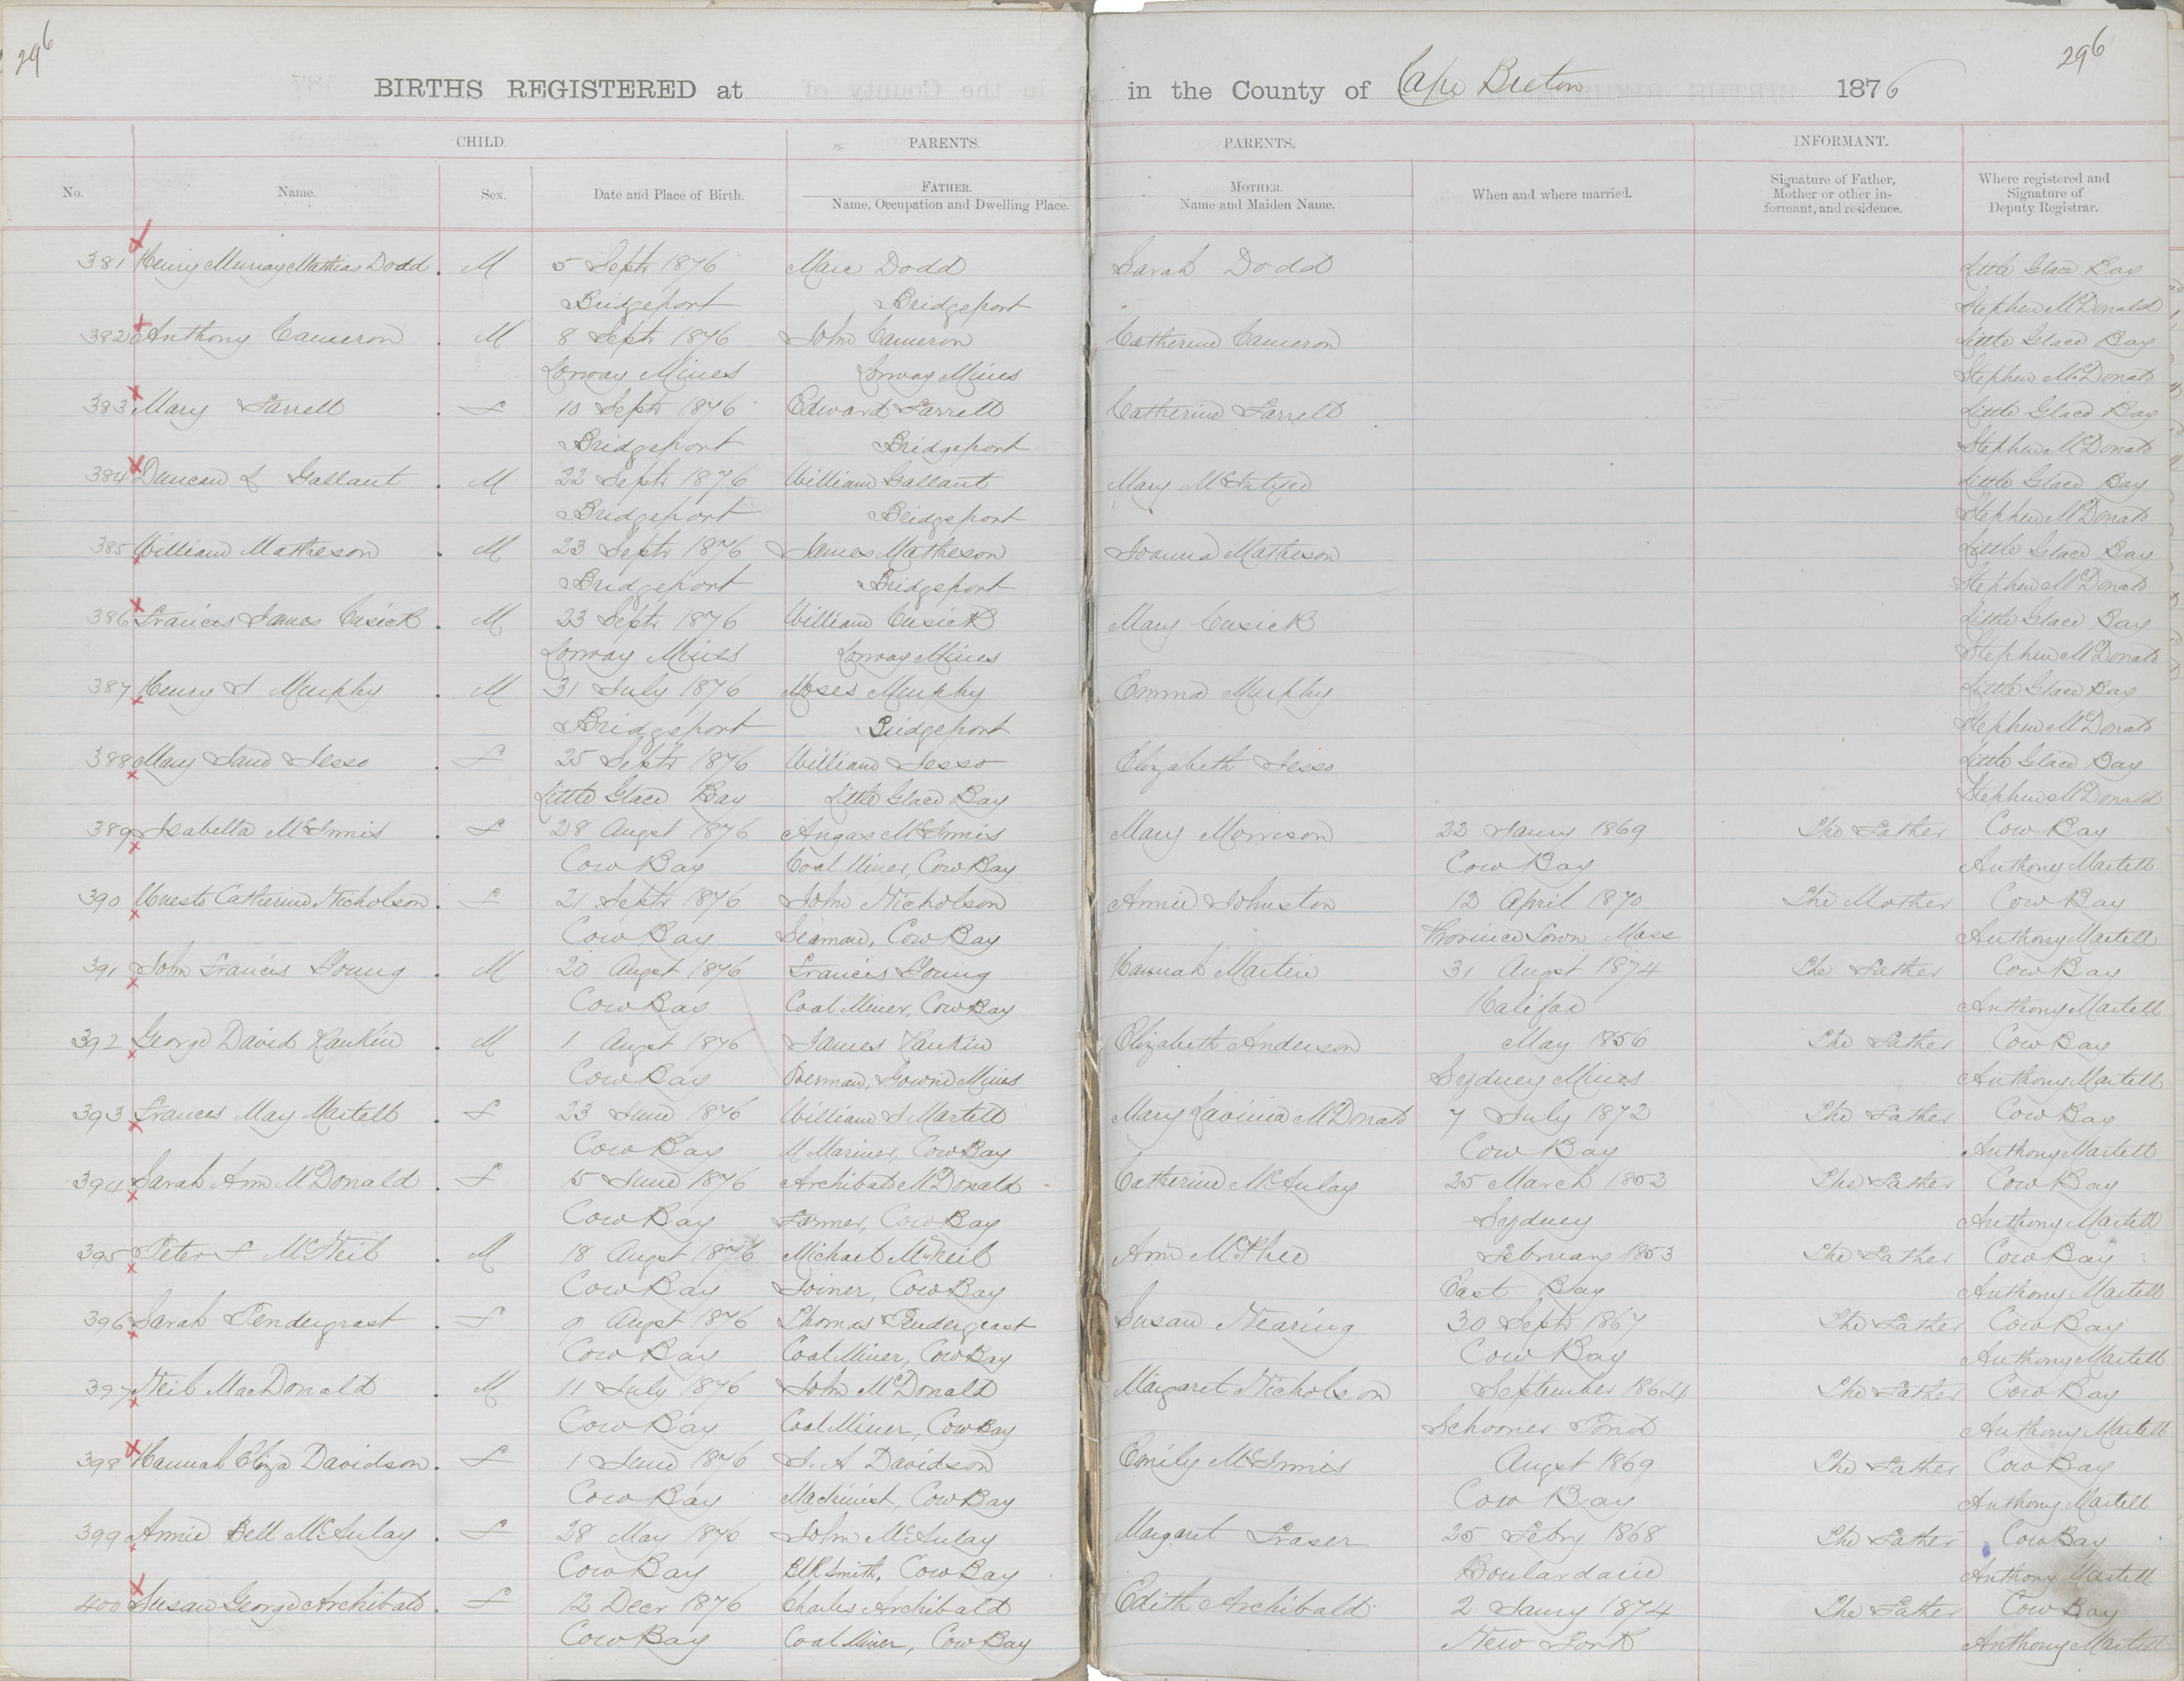 296
296
BIRTHS REGISTERED at in the County of Cape Breton 1876
CHILD. PARENTS. PARENTS. INFORMANT.
No. Name. Sex. Date and Place of Birth. FATHER. Name, Occupation and Dwelling Place. MOTHER. Name and Maiden Name. When and where married. Signature of Father, Mother or other informant, and residence. Where registered and Signature of Deputy Registrar.
381 Henry Murray Mathias Dodd. M 5 Septr 1876 Marc Dodd Sarah Dodd Little Glace Bay
Bridgeport Bridgeport Stephen McDonald
382 Anthony Cameron . M 8 Septr 1876 John Cameron Catherine Cameron Little Glace Bay
Lorway Mines Lorway Mines Stephen McDonald
383 Mary Farrell . F 10 Septr 1876 Edward Farrell Catherine Farrell Little Glace Bay
Bridgeport Bridgeport Stephen McDonald
384 Duncan L Gallant . M 22 Septr 1876 William Gallant Mary McIntyre Little Glace Bay
Bridgeport Bridgeport Stephen McDonald
385 William Matheson . M 23 Septr 1876 James Matheson Joanna Matheson Little Glace Bay
Bridgeport Bridgeport Stephen McDonald
386 Francis James Cusick . M 23 Septr 1876 William Cusick Mary Cusick Little Glace Bay
Lorway Mines Lorway Mines Stephen McDonald
387 Henry S Murphy . M 31 July 1876 Moses Murphy Emma Murphy Little Glace Bay
Bridgeport Bridgeport Stephen McDonald
388 Mary Jane Jesso . F 25 Septr 1876 William Jesso Elizabeth Jesso Little Glace Bay
Little Glace Bay Little Glace Bay Stephen McDonald
389 Isabella McInnis . F 28 Augst 1876 Angas McInnis Mary Morrison 22 Jany 1869 The Father Cow Bay
Cow Bay Coal Miner, Cow Bay Cow Bay Anthony Martell
390 Catherine Nicholson . F 21 Septr 1876 John Nicholson Annie Johnston 12 April 1870 The Mother Cow Bay
Cow Bay Seaman, Cow Bay Province Town Mass Anthony Martell
391 John Francis Young . M 20 Augst 1876 Francis Young Hannah Martin 31 Augst 1874 The Father Cow Bay
Cow Bay Coal Miner, Cow Bay Halifax Anthony Martell
392 George David Rankin . M 1 Augst 1876 James Rankin Elizabeth Anderson May 1856 The Father Cow Bay
Cow Bay Mines Sydney Mines Anthony Martell
393 Frances May Martell . F 23 June 1876 William J Martell Mary Lavinia McDonald 7 July 1872 The Father Cow Bay
Cow Bay M Mariner, Cow Bay Cow Bay Anthony Martell
394 Sarah Ann McDonald . F 5 June 1876 Archibald McDonald Catherine McAulay 25 March 1853 The Father Cow Bay
Cow Bay Farmer, Cow Bay Sydney Anthony Martell
395 Peter F McNeil . M 18 Augst 1876 Michael McNeil Ann McPhee February 1853 The Father Cow Bay
Cow Bay Joiner, Cow Bay East Bay Anthony Martell
396 Sarah Pendergrast . F 9 Augst 1876 Thomas Pendergrast Susan Nearing 30 Septr 1867 The Father Cow Bay
Cow Bay Coal Miner, Cow Bay Cow Bay Anthony Martell
397 Neil MacDonald . M 11 July 1876 John McDonald Margaret Nicholson September 1864 The Father Cow Bay
Cow Bay Coal Miner, Cow Bay Schooner Pond Anthony Martell
398 Hannah Eliza Davidson . F 1 June 1876 J. A Davidson Emily McInnis Augst 1869 The Father Cow Bay
Cow Bay Machinist, Cow Bay Cow Bay Anthony Martell
399 Annie Bell McAulay . F 28 May 1876 John McAulay Margaret Fraser 25 Febry 1868 The Father Cow Bay
Cow Bay Blk Smith, Cow Bay Boulardarie Anthony Martell
400 Susan George Archibald . F 12 Decr 1876 Charles Archibald Edith Archibald 2 Jany 1874 The Father Cow Bay
Cow Bay Coal Miner, Cow Bay New York Anthony Martell